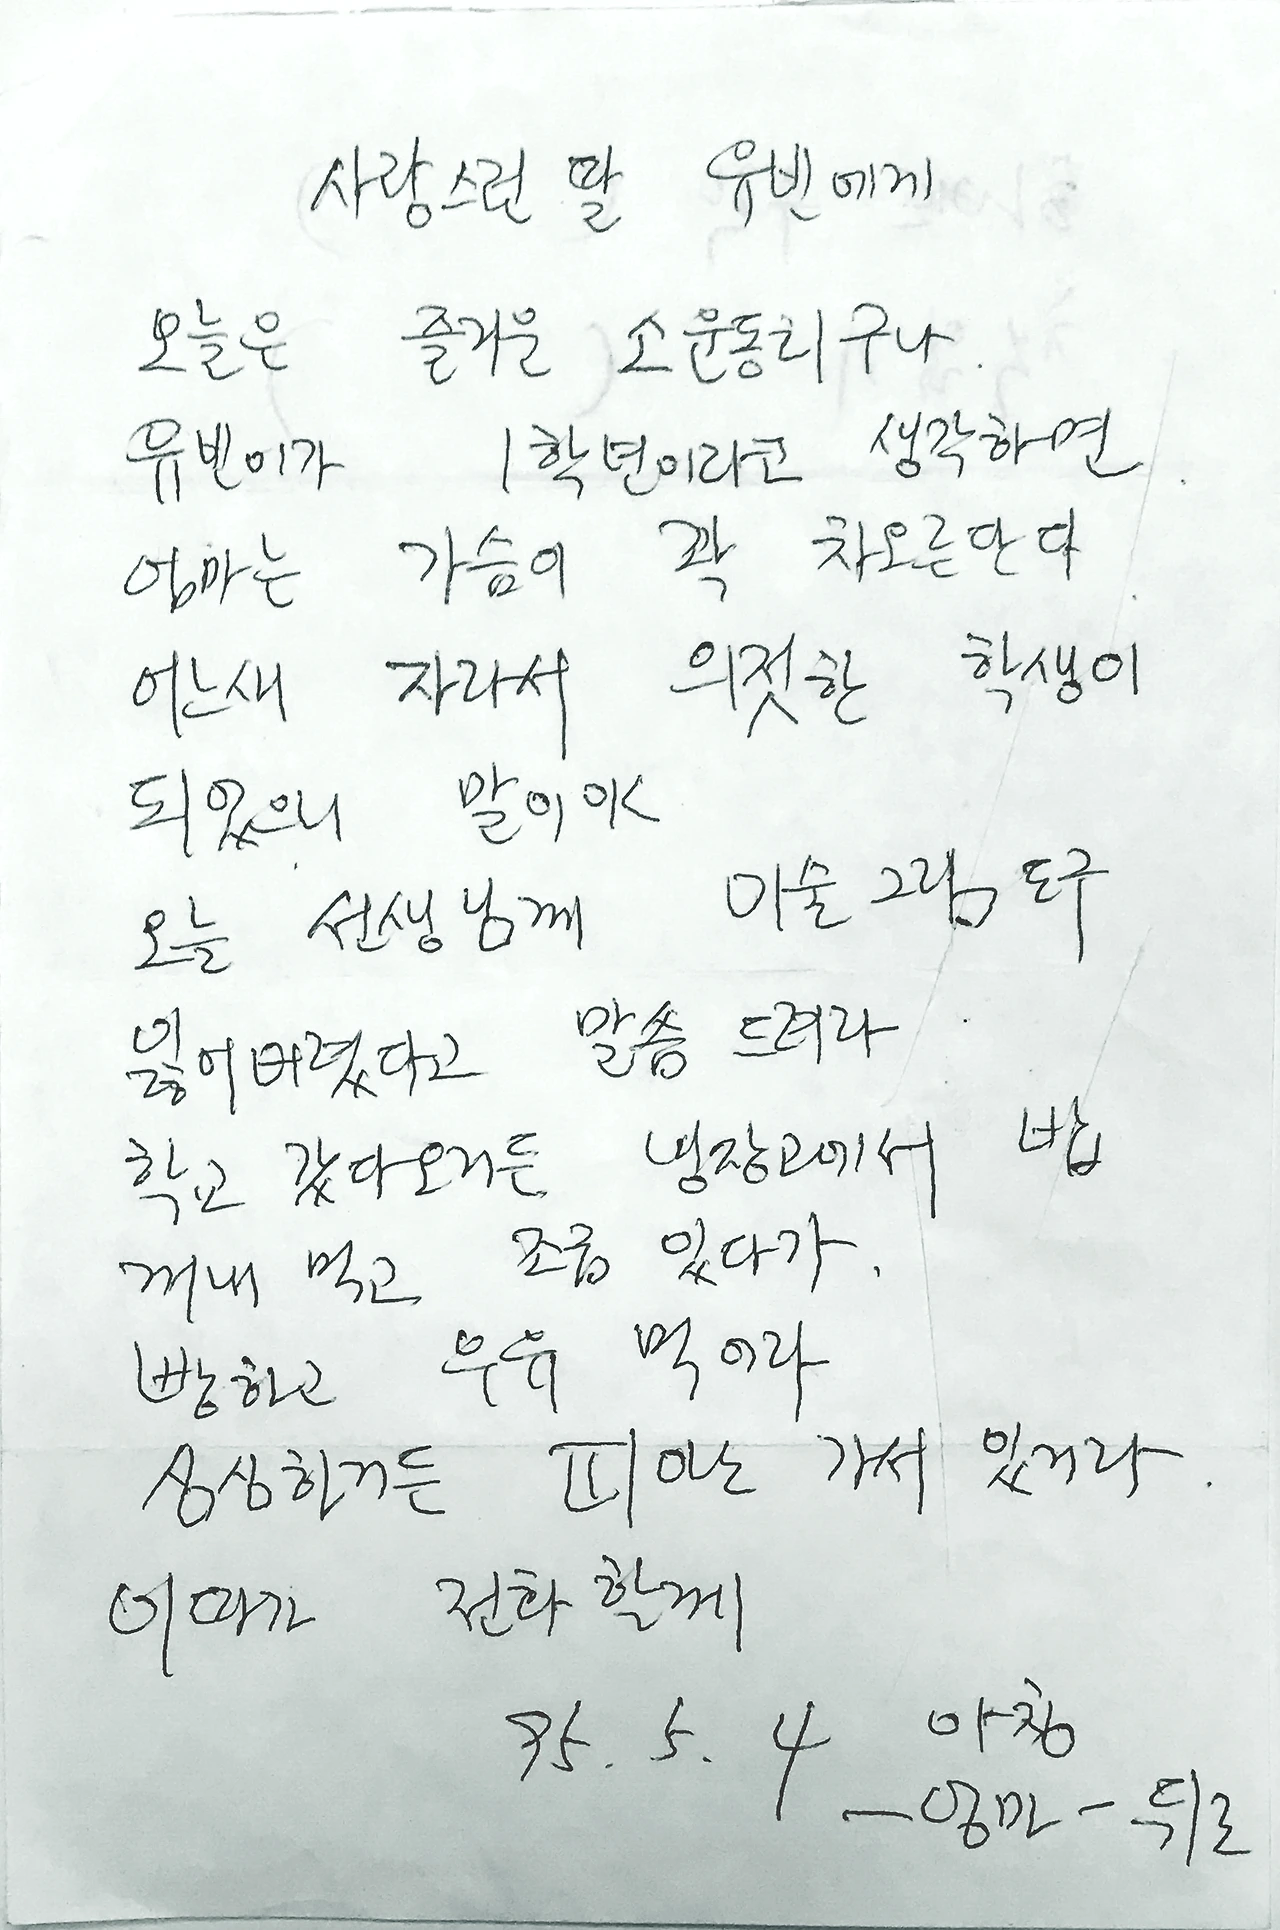 사랑스런 딸 유빈에게
오늘은 즐거운 소운동회구나.
유빈이가 1학년이라고 생각하면.
엄마는 가슴이 꽉 차오른단다.
어느새 자라서 의젓한 학생이
되었으니 말이야
오늘 선생님께 미술그림도구
잃어버렸다고 말씀드려라.
학교 갔다오거든 냉장고에서 밥
꺼내 먹고 조금 있다가.
빵하고 우유 먹어라
심심하거든 피아노 가서 있거라.
이따가 전화할께
95. 5. 4 아침
- 엄마 - 뒤로